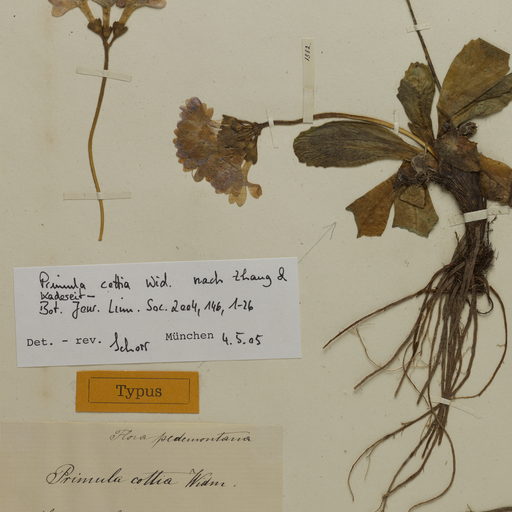 1882
Primula cottia Wid. nach Zhang &
Kadereit –
Bot. Jour. Linn. Soc. 2004, 146, 1-26
Det. – rev. Schorr München 4.5.05
Typus
Flora pedemontana
Primula cottia Widm.